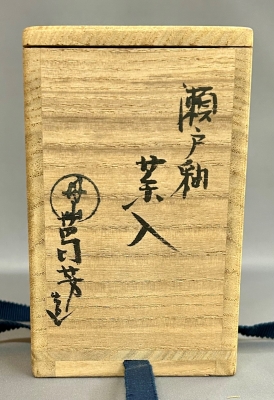 瀬戸釉
茶入
丹山
昌芳造